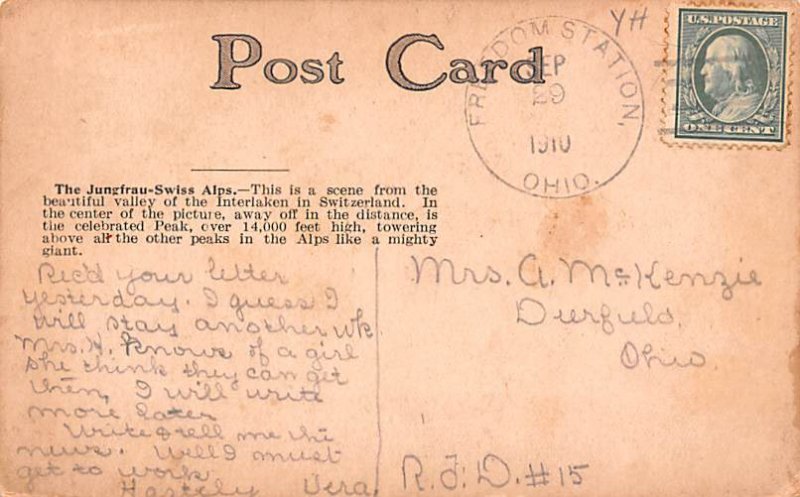 Post Card
YH
FREEDOM STATION,
SEP
29
1910
OHIO.
U.S. POSTAGE
ONE CENT
The Jungfrau-Swiss Alps.—This is a scene from the
beautiful valley of the Interlaken in Switzerland. In
the center of the picture, away off in the distance, is
the celebrated Peak, over 14,000 feet high, towering
above all the other peaks in the Alps like a mighty
giant.
Rec'd your letter
yesterday. I guess I
will stay another wk
Mrs. H. knows of a girl
she think they can get
then, I will write
more later
Write & tell me the
news. Well I must
get to work
Hastely Vera.
Mrs. A. McKenzie
Deerfield,
Ohio.
R.F.D. #15